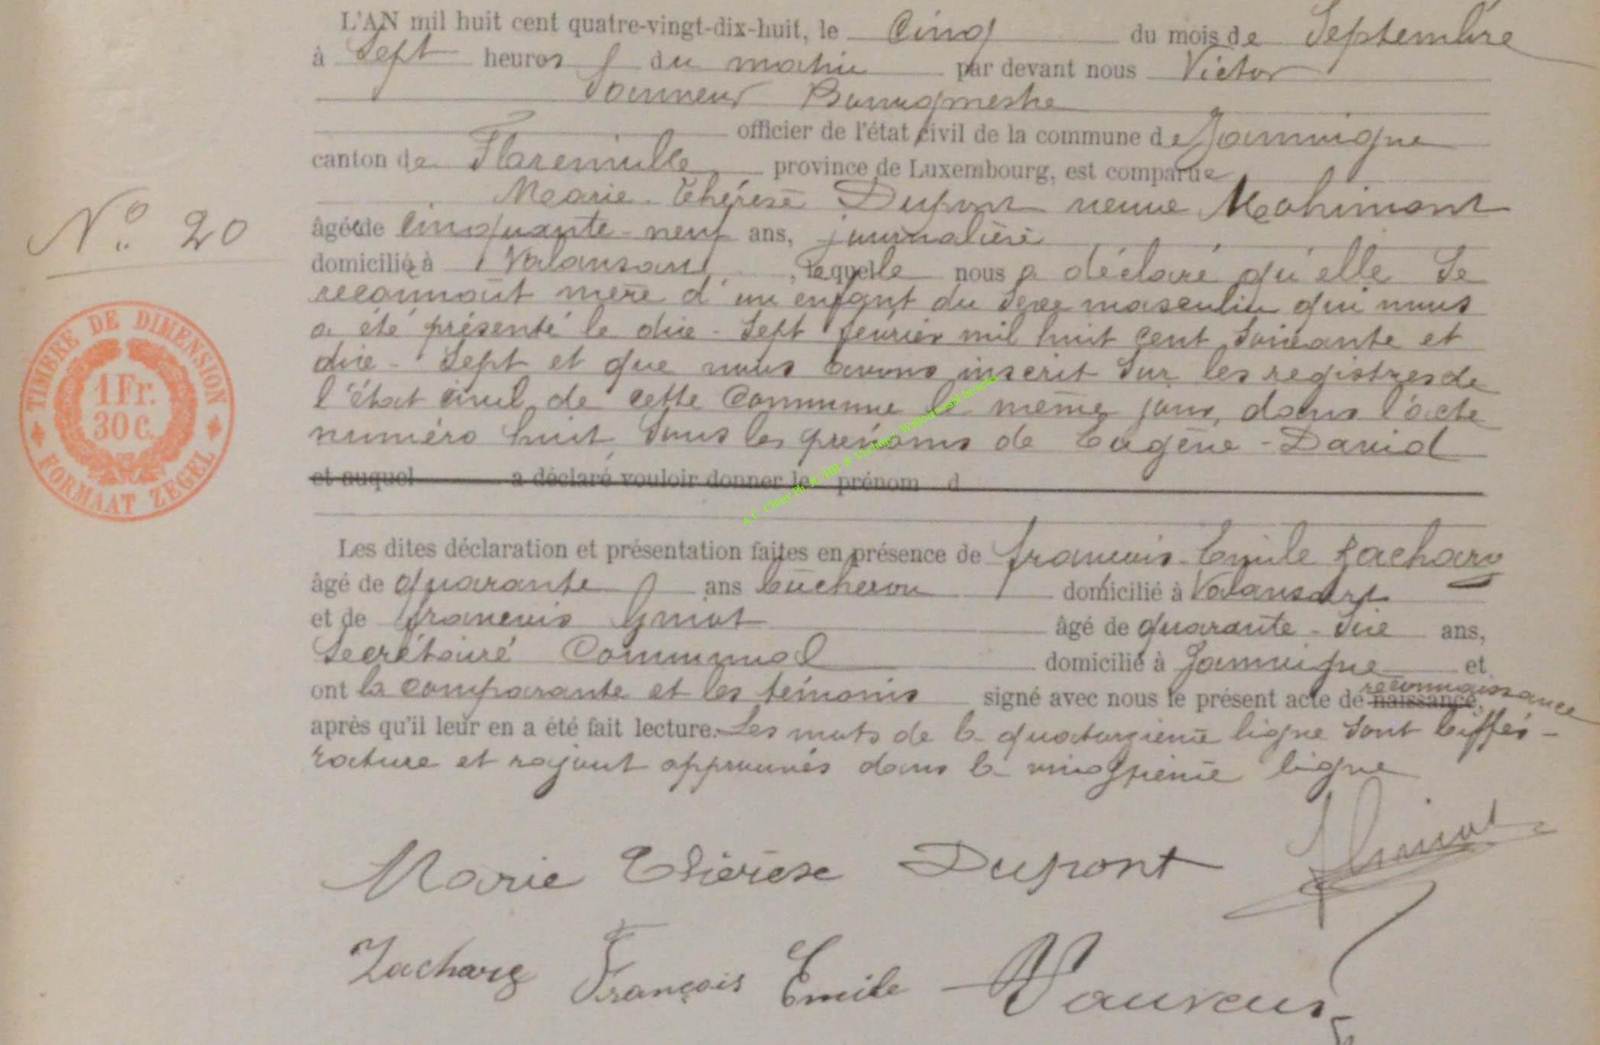 L'AN mil huit cent quatre-vingt-dix-huit, le Cinq du mois de Septembre
à Sept heures du matin par devant nous Victor
Bourgmestre
officier de l'état civil de la commune de Jamoigne
canton de Florenville province de Luxembourg, est comparue
Marie-Thérèse Dupont veuve Mohimont
âgée de Cinquante-neuf ans, journalière
domiciliée à Valansart, laquelle nous a déclaré qu'elle se
reconnaît mère d'un enfant du sexe masculin qui nous
a été présenté le dix-Sept février mil huit cent Soixante et
dix-Sept et que nous avons inscrit Sur les registres de
l'état civil de cette Commune le même jour, dans l'acte
numéro huit, Sous les prénoms de Eugène-David
et auquel a déclaré vouloir donner le prénom d
Les dites déclaration et présentation faites en présence de francois-Emile Zachary
âgé de quarante ans bûcheron domicilié à Valansart
et de francois âgé de quarante-Six ans,
Secrétaire Communal domicilié à Jamoigne et
ont la comparante et les témoins signé avec nous le présent acte de naissance, reconnaissance
après qu'il leur en a été fait lecture. Les mots de la quatorzième ligne Sont biffés-
rature et rajout approuvés dans la vingtième ligne
N° 20
TIMBRE DE DIMENSION
1 Fr.
30 C.
FORMAAT ZEGEL
Marie Thérèse Dupont
Zachary François Emile